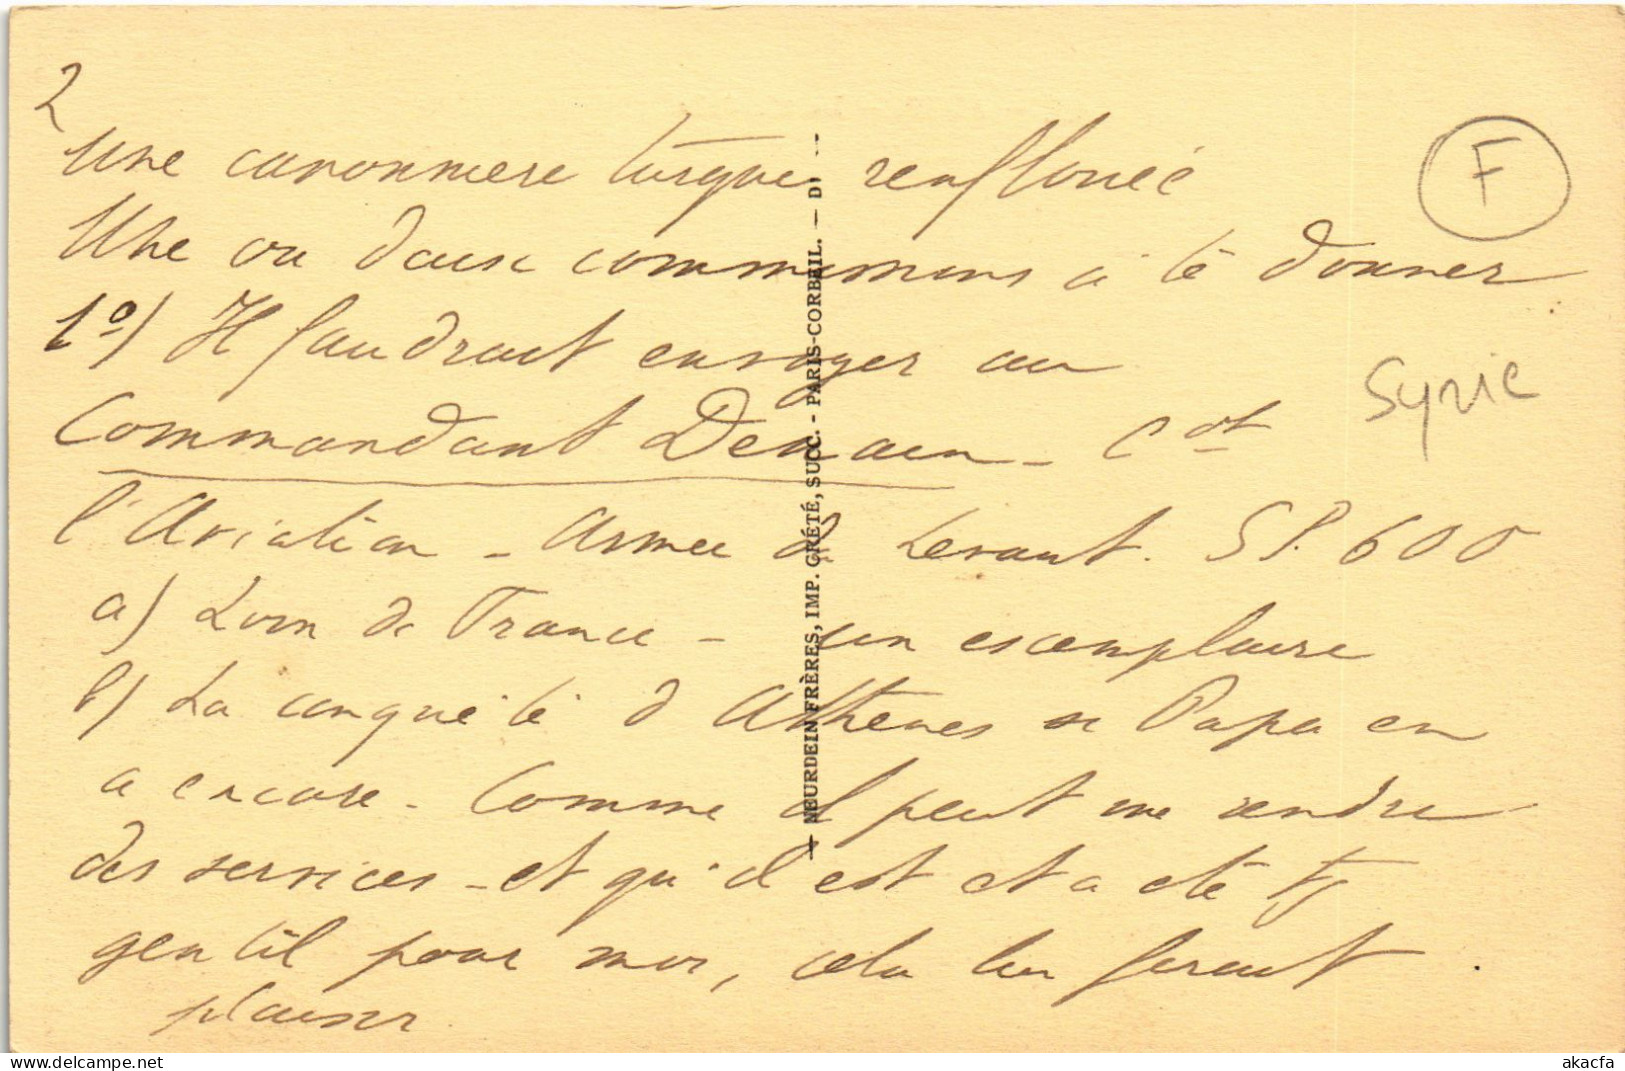 2
Une canonnière turque renflouée
Une ou deux commissions à te donner
1º) Il faudrait envoyer au
Commandant Denain - Cdt
l'Aviation - Armée du Levant. S.P. 600
a) Loin de France - un exemplaire
b) La conquête d'Athènes si Papa en
a encore - Comme il peut me rendre
des services - et qu'il est et a été ts
gentil pour moi, cela lui ferait
plaisir.
F
Syrie
— NEURDEIN FRÈRES, IMP. CRÉTÉ, SUCC. - PARIS-CORBEIL. —
akacfa